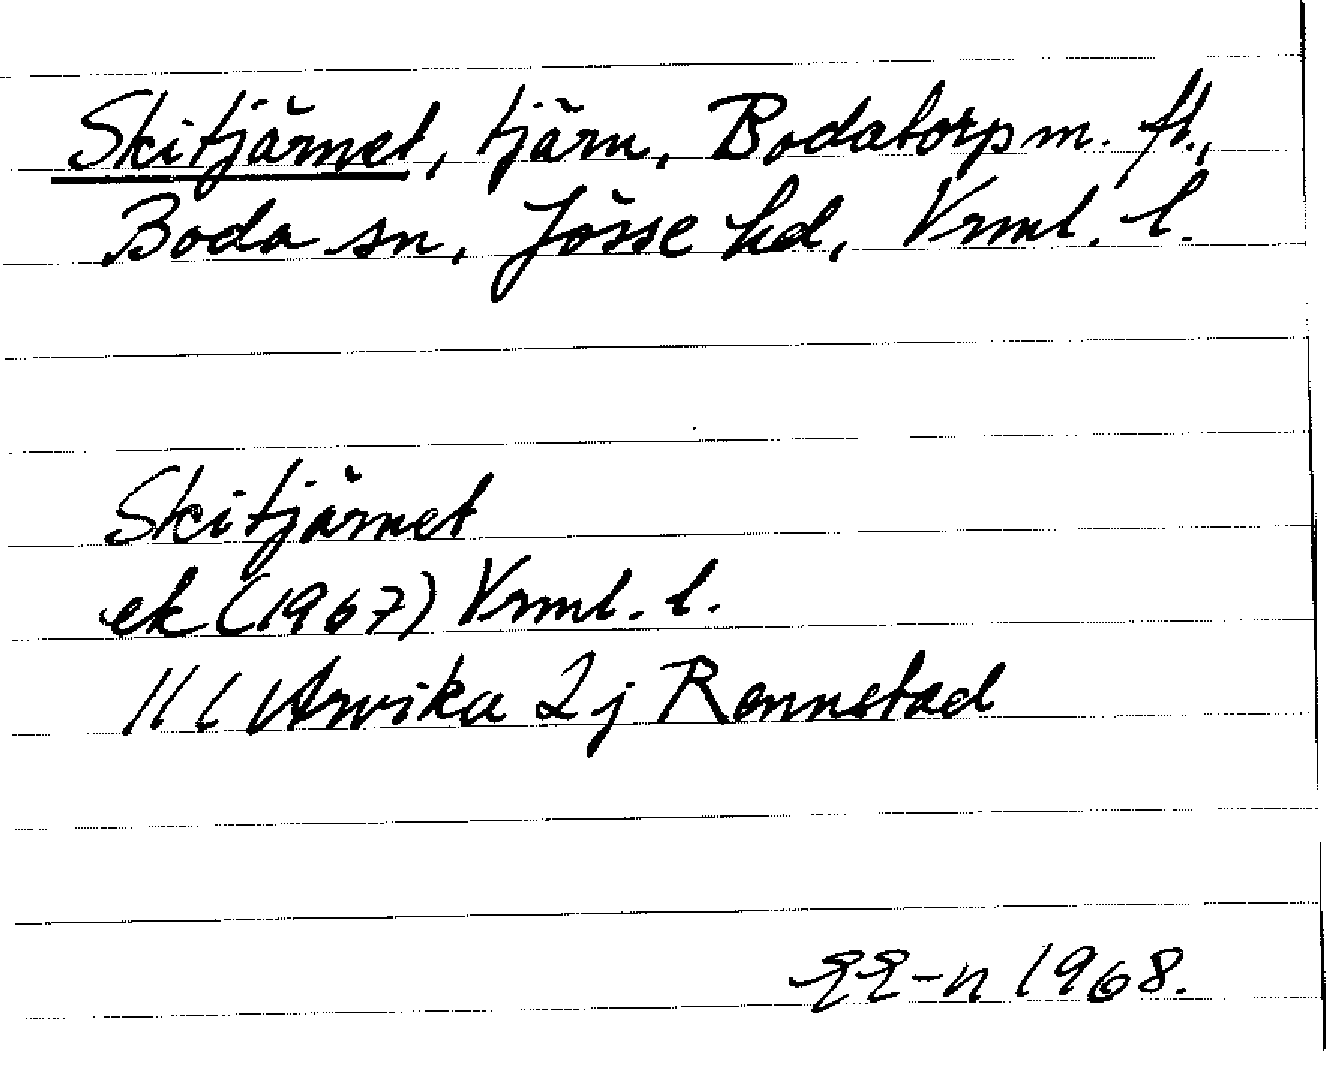 Skitjärnet, tjärn, Bodatorp m. fl.,
Boda sn, Jösse hd, Vrml. l.
Skitjärnet
ek (1967) Vrml. l.
11 C Arvika 2j Rennstad
1968.